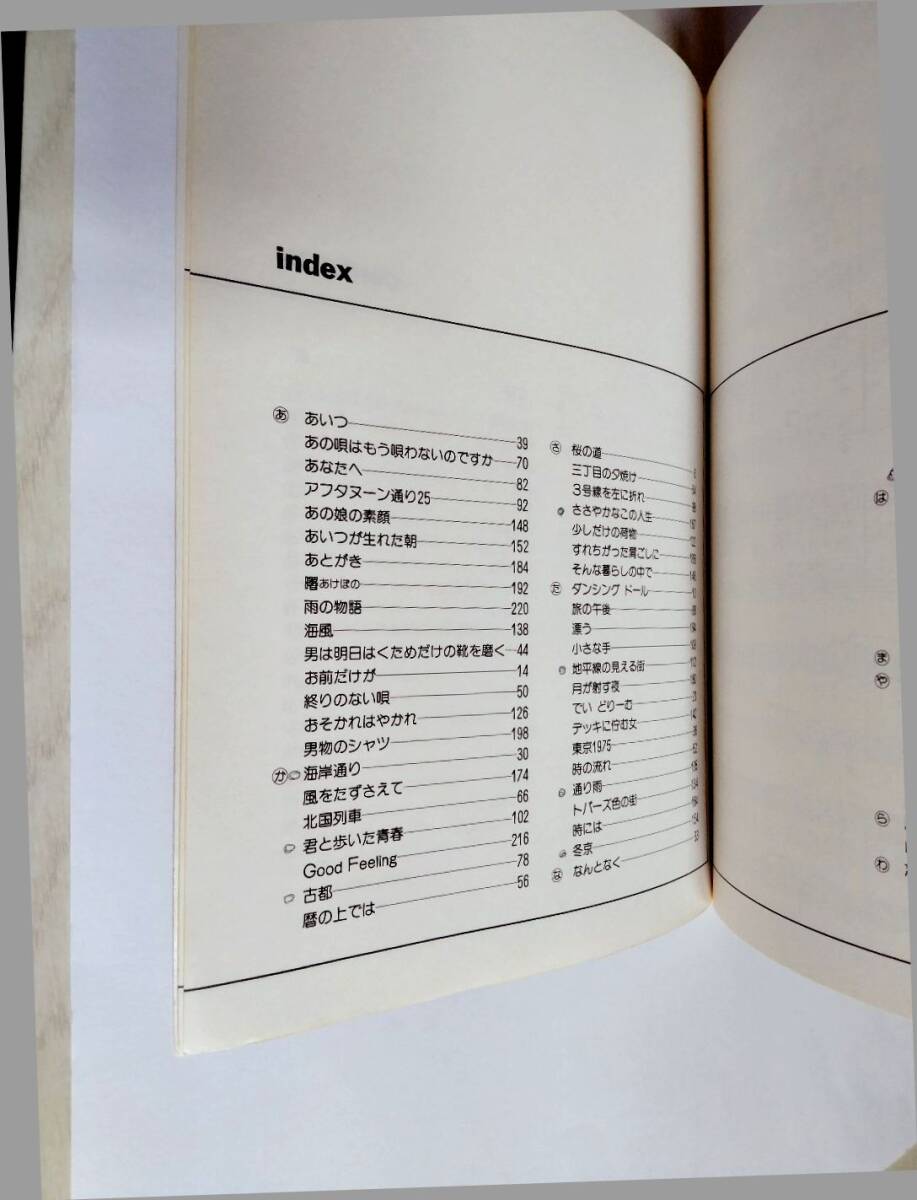 index
あ あいつ 39
あの唄はもう唄わないのですか 70
あなたへ 82
アフタヌーン通り25 92
あの娘の素顔 148
あいつが生れた朝 152
あとがき 184
曙あけぼの 192
雨の物語 220
海風 138
男は明日はくためだけの靴を磨く 44
お前だけが 14
終りのない唄 50
おそかれはやかれ 126
男物のシャツ 198
か 海岸通り 30
風をたずさえて 174
北国列車 66
君と歩いた青春 102
Good Feeling 216
古都 78
暦の上では 56
さ 桜の道
三丁目の夕焼け
3号線を左に折れ
ささやかなこの人生
少しだけの荷物
すれちがった肩ごしに
そんな暮らしの中で
た ダンシング ドール
旅の午後
漂う
小さな手
地平線の見える街
月が射す夜
でい どりーむ
デッキに佇む女
東京1975
時の流れ
通り雨
トパーズ色の街
時には
冬京
な なんとなく
は
ま
や
ら
わ